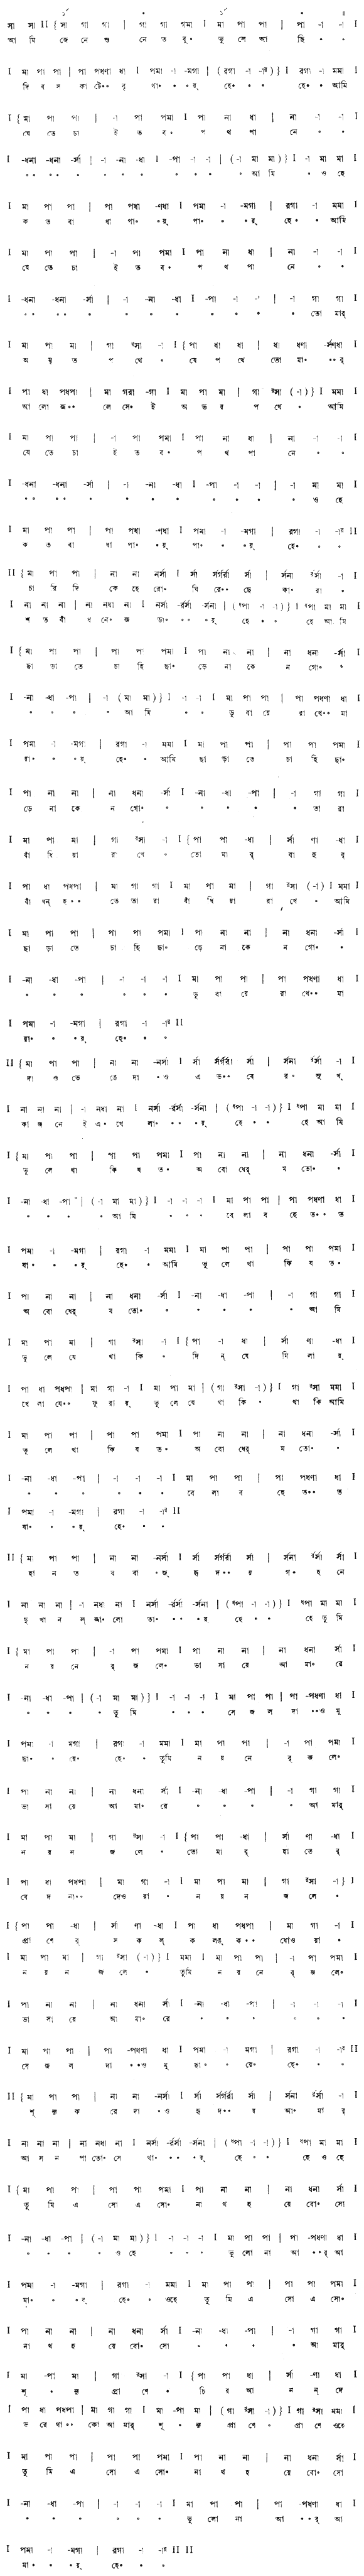 সা সা II { সা গা গা | গা গা গমা I মা পা পা | পা -া -া I
আ মি জে নে শু নে ত বু॰ ভু লে আ ছি ॰ ॰
I মা পা পা | পা পধণা ধা I পমা -া -মগা | (রগা -া -া) } I রগা -া মমা I
দি ব স কা টে॰॰ বৃ থা॰ ॰ ॰য়্ হে॰ ॰ ॰ হে॰ ॰ আমি
I { মা পা পা | -া পা পমা I পা না ধা | না -া -া I
যে তে চা ই ত ব॰ প থ পা নে ॰ ॰
I -ধনা -ধনা -র্সা | -া -না -ধা I -পা -া -া | (-া মা মা) } I -া মা মা I
॰॰ ॰॰ ॰ ॰ ॰ ॰ ॰ ॰ ॰ ॰ আ মি ॰ ও হে
I মা পা পা | পা পধা -ণধা I পমা -া -মগা | রগা -া মমা I
ক ত বা ধা পা॰ ॰য়্ পা॰ ॰ ॰য়্ হে॰ ॰ আমি
I মা পা পা | -া পা পমা I পা না ধা | না -া -া I
যে তে চা ই ত ব॰ প থ পা নে ॰ ॰
I -ধনা -ধনা -র্সা | -া -না -ধা I -পা -া -া | -া গা গা I
॰॰ ॰॰ ॰ ॰ ॰ ॰ ॰ ॰ ॰ ॰ তো মার্
I মা পা মা | গা সা -া I { পা ধা ধা | ধা ধণা -র্সণধা I
অ মৃ ত প থে ॰ যে প থে তো মা॰ ॰॰র্
I পা ধা পধপা | মা গরা -গা I মা পা মা | গা সা (-া) } I মমা I
আ লো জ্ব॰॰ লে সে॰ ই অ ভ য় প থে ॰ আমি
I মা পা পা | -া পা পমা I পা না ধা | না -া -া I
যে তে চা ই ত ব॰ প থ পা নে ॰ ॰
I -ধনা -ধনা -র্সা | -া -না -ধা I -পা -া -া | -া মা মা I
॰॰ ॰॰ ॰ ॰ ॰ ॰ ॰ ॰ ॰ ॰ ও হে
I মা পা পা | পা পধা -ণধা I পমা -া -মগা | রগা -া -া II
ক ত বা ধা পা॰ ॰য়্ পা॰ ॰ ॰য়্ হে॰ ॰ ॰
II { মা পা পা | না না নর্সা I র্সা র্সর্গর্রা র্সা | র্সনা র্সা -া I
চা রি দি কে হে রো॰ ঘি রে॰॰ ছে কা॰ রা ॰
I না না না | না নধা না I নর্সা -র্রর্সা -র্সনা | (পা -া -া) } I পা মা মা I
শ ত বাঁ ধ নে॰ জ ড়া॰ ॰॰ ॰য়্ হে ॰ ॰ হে আ মি
I { মা পা পা | পা পা পমা I পা না না | না ধনা -র্সা I
ছা ড়া তে চা হি ছা॰ ড়ে না কে ন গো॰ ॰
I -না -ধা -পা | -া (মা মা) } I -া -া I মা পা পা | পা পধণা ধা I
॰ ॰ ॰ ॰ আ মি ॰ ॰ ডু বা য়ে রা খে॰॰ মা
I পমা -া -মগা | রগা -া মমা I মা পা পা | পা পা পমা I
য়া॰ ॰ ॰য়্ হে॰ ॰ আমি ছা ড়া তে চা হি ছা॰
I পা না না | না ধনা -র্সা I -না -ধা -পা | -া গা গা I
ড়ে না কে ন গো॰ ॰ ॰ ॰ ॰ ॰ তা রা
I মা পা মা | গা সা -া I { পা পা -ধা | র্সা ণা -ধা I
বাঁ ধি য়া রা খে ॰ তো মা র্ বা হু র্
I পা ধা পধপা | মা গা গা I মা পা মা | গা সা (-া) } I মমা I
বাঁ ধন্ হ॰॰ তে তা রা বাঁ ধি য়া রা খে ॰ আমি
I মা পা পা | পা পা পমা I পা না না | না ধনা -র্সা I
ছা ড়া তে চা হি ছা॰ ড়ে না কে ন গো॰ ॰
I -না -ধা -পা | -া -া -া I মা পা পা | পা পধণা ধা I
॰ ॰ ॰ ॰ ॰ ॰ ডু বা য়ে রা খে॰॰ মা
I পমা -া -মগা | রগা -া -া II
য়া॰ ॰ ॰য়্ হে॰ ॰ ॰
II { মা পা পা | না না -নর্সা I র্সা র্সর্গর্রা র্সা | র্সনা র্সা -া I
দা ও ভে ঙে দা ॰ও এ ভ॰॰ বে র॰ সু খ্
I না না না | -া নধা না I নর্সা -র্রর্সা -র্সনা | (পা -া -া) } I পা মা মা I
কা জ নে ই এ॰ খে লা॰ ॰॰ ॰য়্ হে ॰ ॰ হে আ মি
I { মা পা পা | পা পা পমা I পা না না | না ধনা -র্সা I
ভু লে থা কি য ত॰ অ বো ধের্ ম তো॰ ॰
I -না -ধা -পা | (-া মা মা) } I -া -া -া I মা পা পা | পা পধণা ধা I
॰ ॰ ॰ ॰ আ মি ॰ ॰ ॰ বে লা ব হে ত॰॰ ত
I পমা -া -মগা | রগা -া মমা I মা পা পা | পা পা পমা I
যা॰ ॰ ॰য়্ হে॰ ॰ আমি ভু লে থা কি য ত॰
I পা না না | না ধনা -র্সা I -না -ধা -পা | -া গা গা I
অ বো ধের্ ম তো॰ ॰ ॰ ॰ ॰ ॰ আ মি
I মা পা মা | গা সা -া I { পা -া ধা | র্সা ণা -ধা I
ভু লে যে থা কি ॰ দি ন্ যে মি লা য়্
I পা ধা পধপা | মা গা -া I মা পা মা | (গা সা -া) } I গা সা মমা I
খে লা যে॰॰ ফু রা য়্ ভু লে যে থা কি ॰ থা কি আমি
I মা পা পা | পা পা পমা I পা না না | না ধনা -র্সা I
ভু লে থা কি য ত॰ অ বো ধের্ ম তো॰ ॰
I -না -ধা -পা | -া -া -া I মা পা পা | পা পধণা ধা I
॰ ॰ ॰ ॰ ॰ ॰ বে লা ব হে ত॰॰ ত
I পমা -া -মগা | রগা -া -া II
যা॰ ॰ ॰য়্ হে॰ ॰ ॰
II { মা পা পা | না না -নর্সা I র্সা র্সর্গর্রা র্সা | র্সনা র্সা র্সা I
হা ন ত ব বা ॰জ্ হৃ দ॰॰ য় গ॰ হ নে
I না না না | -া নধা না I নর্সা -র্রর্সা -র্সনা | (পা -া -া) } I পা মা মা I
দু খান ল্ জ্বা॰ লো তা॰ ॰॰ ॰য়্ হে ॰ ॰ হে তু মি
I { মা পা পা | -া পা পমা I পা না না | না ধনা র্সা I
ন য় নে র্ জ লে॰ ভা সা য়ে আ মা॰ রে
I -না -ধা -পা | (-া মা মা) } I -া -া -া I মা পা পা | পা -পধণা ধা I
॰ ॰ ॰ ॰ তু মি ॰ ॰ ॰ সে জ ল দা ॰॰ও মু
I পমা -া মগা | রগা -া মমা I মা পা পা | -া পা পমা I
ছা॰ ॰ য়ে॰ হে॰ ॰ তুমি ন য় নে র্ জ লে॰
I পা না না | না ধনা র্সা I -না -ধা -পা | -া গা গা I
ভা সা য়ে আ মা॰ রে ॰ ॰ ॰ ॰ আ মার্
I মা পা মা | গা সা -া I { পা পা -ধা | র্সা ণা -ধা I
ন য় ন জ লে ॰ তো মা র্ হা তে র্
I পা ধা পধপা | মা গা -া I মা পা মা | গা সা -া } I
বে দ না॰॰ দেও য়া ॰ ন য় ন জ লে ॰
I { পা পা -ধা | র্সা ণা -ধা I পা ধা পধপা | মা গা -া I
প্রা ণে র্ স ক ল্ ক লঙ্ ক॰॰ ধোও য়া ॰
I মা পা মা | গা সা (-া) } I মমা I মা পা পা | -া পা পমা I
ন য় ন জ লে ॰ তুমি ন য় নে র্ জ লে॰
I পা না না | না ধনা র্সা I -না -ধা -পা | -া -া -া I
ভা সা য়ে আ মা॰ রে ॰ ॰ ॰ ॰ ॰ ॰
I মা পা পা | পা -পধণা ধা I পমা -া মগা | রগা -া -া II
সে জ ল দা ॰॰ও মু ছা॰ ॰ য়ে॰ হে॰ ॰ ॰
II { মা পা পা | না না -নর্সা I র্সা র্সর্গর্রা র্সা | র্সনা র্সা -া I
শূ ন্য ক রে দা ॰ও হৃ দ॰॰ য় আ॰ মা র্
I না না না | না নধা না I নর্সা -র্রর্সা -র্সনা | (পা -া -া) } I পা মা মা I
আ স ন পা তো॰ সে থা॰ ॰॰ ॰য়্ হে ॰ ॰ হে ও হে
I { মা পা পা | পা পা পমা I পা না না | না ধনা র্সা I
তু মি এ সো এ সো॰ না থ হ য়ে বো॰ সো
I -না -ধা -পা | (-া মা মা) } I -া -া -া I মা পা পা | পা -পধণা ধা I
॰ ॰ ॰ ॰ ও হে ॰ ॰ ॰ ভু লো না আ ॰॰র্ আ
I পমা -া -মগা | রগা -া মমা I মা পা পা | পা পা পমা I
মা॰ ॰ ॰য়্ হে॰ ॰ ওহে তু মি এ সো এ সো॰
I পা না না | না ধনা র্সা I -না -ধা -পা | -া গা গা I
না থ হ য়ে বো॰ সো ॰ ॰ ॰ ॰ আ মার্
I মা -পা মা | গা সা -া I { পা পা ধা | র্সা -ণা ধা I
শূ ॰ ন্য প্রা ণে ॰ চি র আ ন ন্ দে
I পা ধা পধপা | মা গা গা I মা -পা মা | (গা সা -া) } I গা সা মমা I
ভ রে থা॰॰ কো আ মার্ শূ ॰ ন্য প্রা ণে ॰ প্রা ণে ওহে
I মা পা পা | পা পা পমা I পা না না | না ধনা র্সা I
তু মি এ সো এ সো॰ না থ হ য়ে বো॰ সো
I -না -ধা -পা | -া -া -া I মা পা পা | পা -পধণা ধা I
॰ ॰ ॰ ॰ ॰ ॰ ভু লো না আ ॰॰র্ আ
I পমা -া -মগা | রগা -া -া II II
মা॰ ॰ ॰য়্ হে॰ ॰ ॰